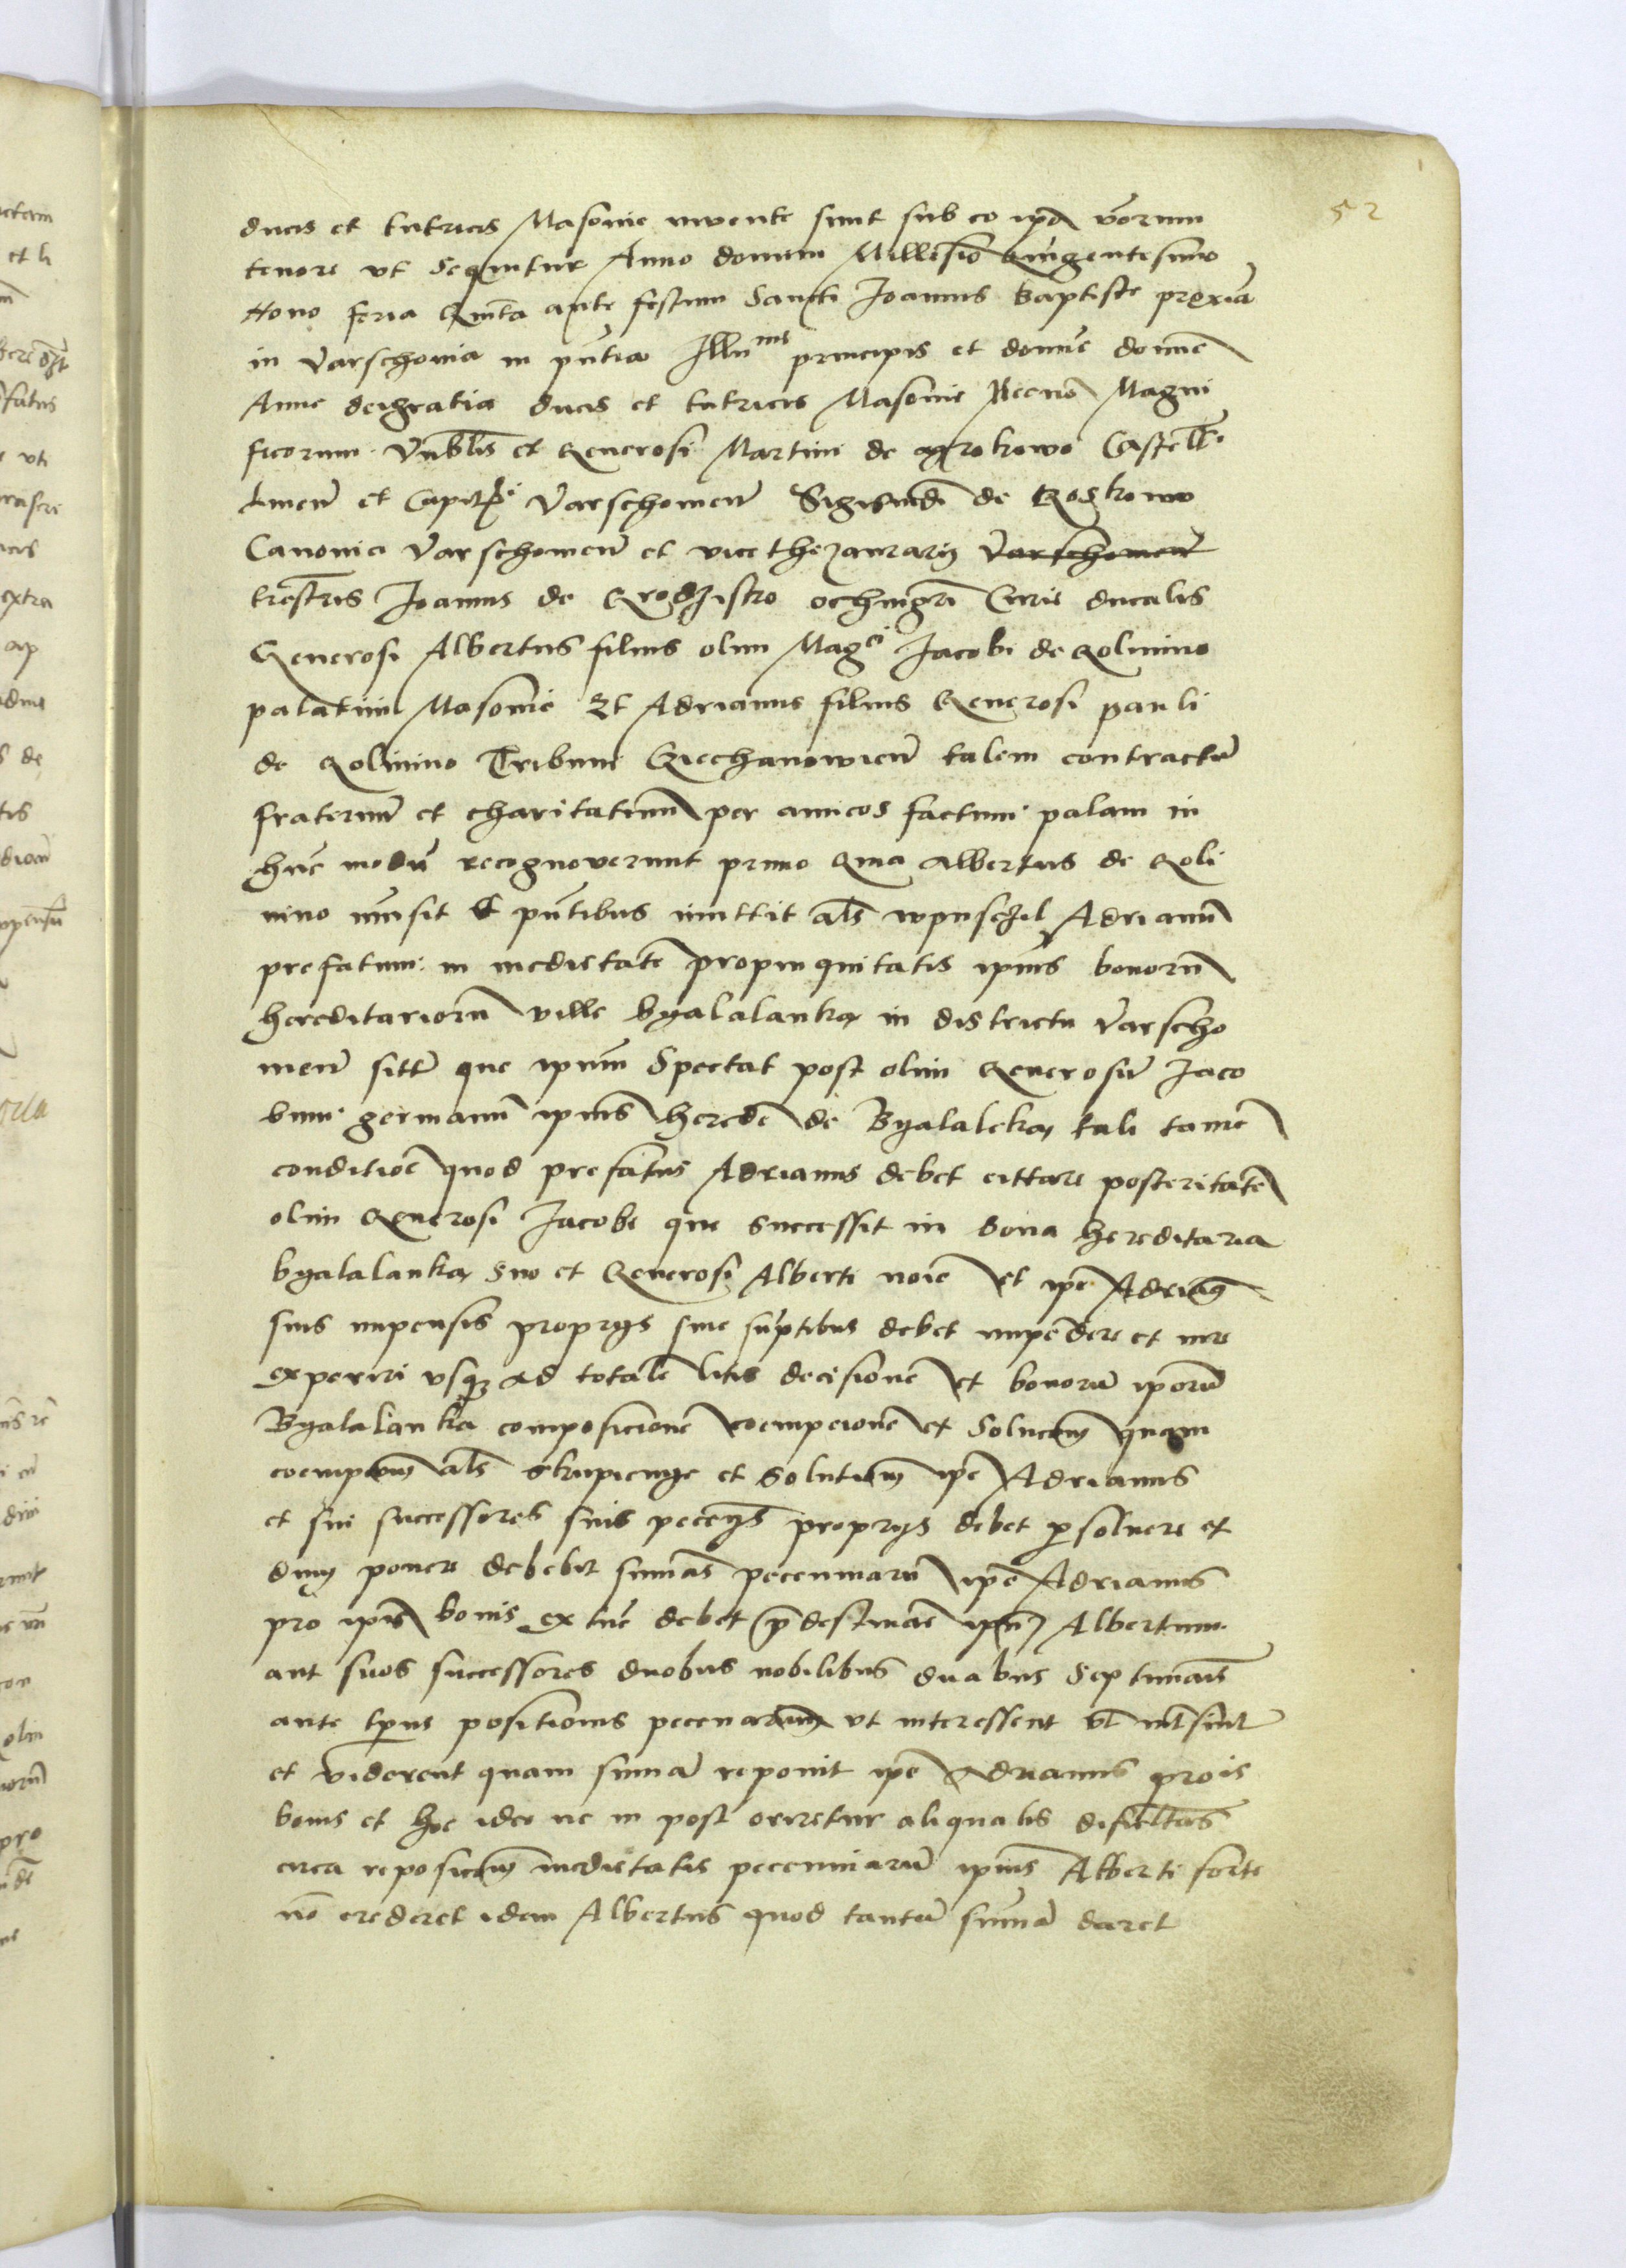 52
ducis et tutricis Masovie invente sunt sub eo ipo vorum
tenore ut sequitur Anno domini Millesio Quingentesimo
Nono feria Quinta ante festum Sancti Joannis Baptiste proxia
in Varschovia in pntia Illu principis et domne domne
Anne deigratia ducis et tutricis Masovie Necno Magni
ficorum Vnblis et Generosi Martini de Castell
et Varschovien Sigismdi de
Canonici Varschovien et vicethezaurarij Varschovien
Joannis de Grodzistro Curie ducalis
Generosi Albertus filius olim Mag Jacobi de Golinino
palatini Masovie Et Adrianus filius Generosi pauli
de Golinino Tribuni Czechanowien talem contractu
fraternu et charitatiuu per amicos factum palam in
huc modu recognoverunt primo Quia Albertus de Goli
nino et pntibus imittit als Adrianu
prefatum in medietate propinquitatis ipius bonoru
hereditarioru ville Byalalanka in districtu Varscho
vien sitt que ipum Spectat post olim Generosu Jaco
bum germanu ipius herede de Byalaleka tali tame
conditioe quod prefatus Adrianus debet cittare posteritate
olim Generosi Jacobi que successit in bona hereditaria
byalalanka suo et Generosi Alberti noie et ipe Adrianus
suis impensis proprijs sine suptibus debet impendere et iure
experiri usq ad totale litis decisione et bonoru iporu
Byalalanka composicione coempcione et Solucom quam
coempcom als skupienye et Solutiom ipe Adrianus
et sui successores suis peceijs proprijs debet psolvere et
dum ponere debebit sumas pecuniaru ipe Adrianus
pro ipis bonis ex tuc debet ipm Albertum
aut suos successores duobus nobilibus duabus Septimais
ante tpus positionis ut interessent
et viderent quam suma reponit ipe Adrianus pro is
bonis et hoc ideo ne in post oriretur aliqualis dificltas
circa reposicom medietatis pecuniaru ipius Alberti forte
no crederet idem Albertus quod tanta suma daret